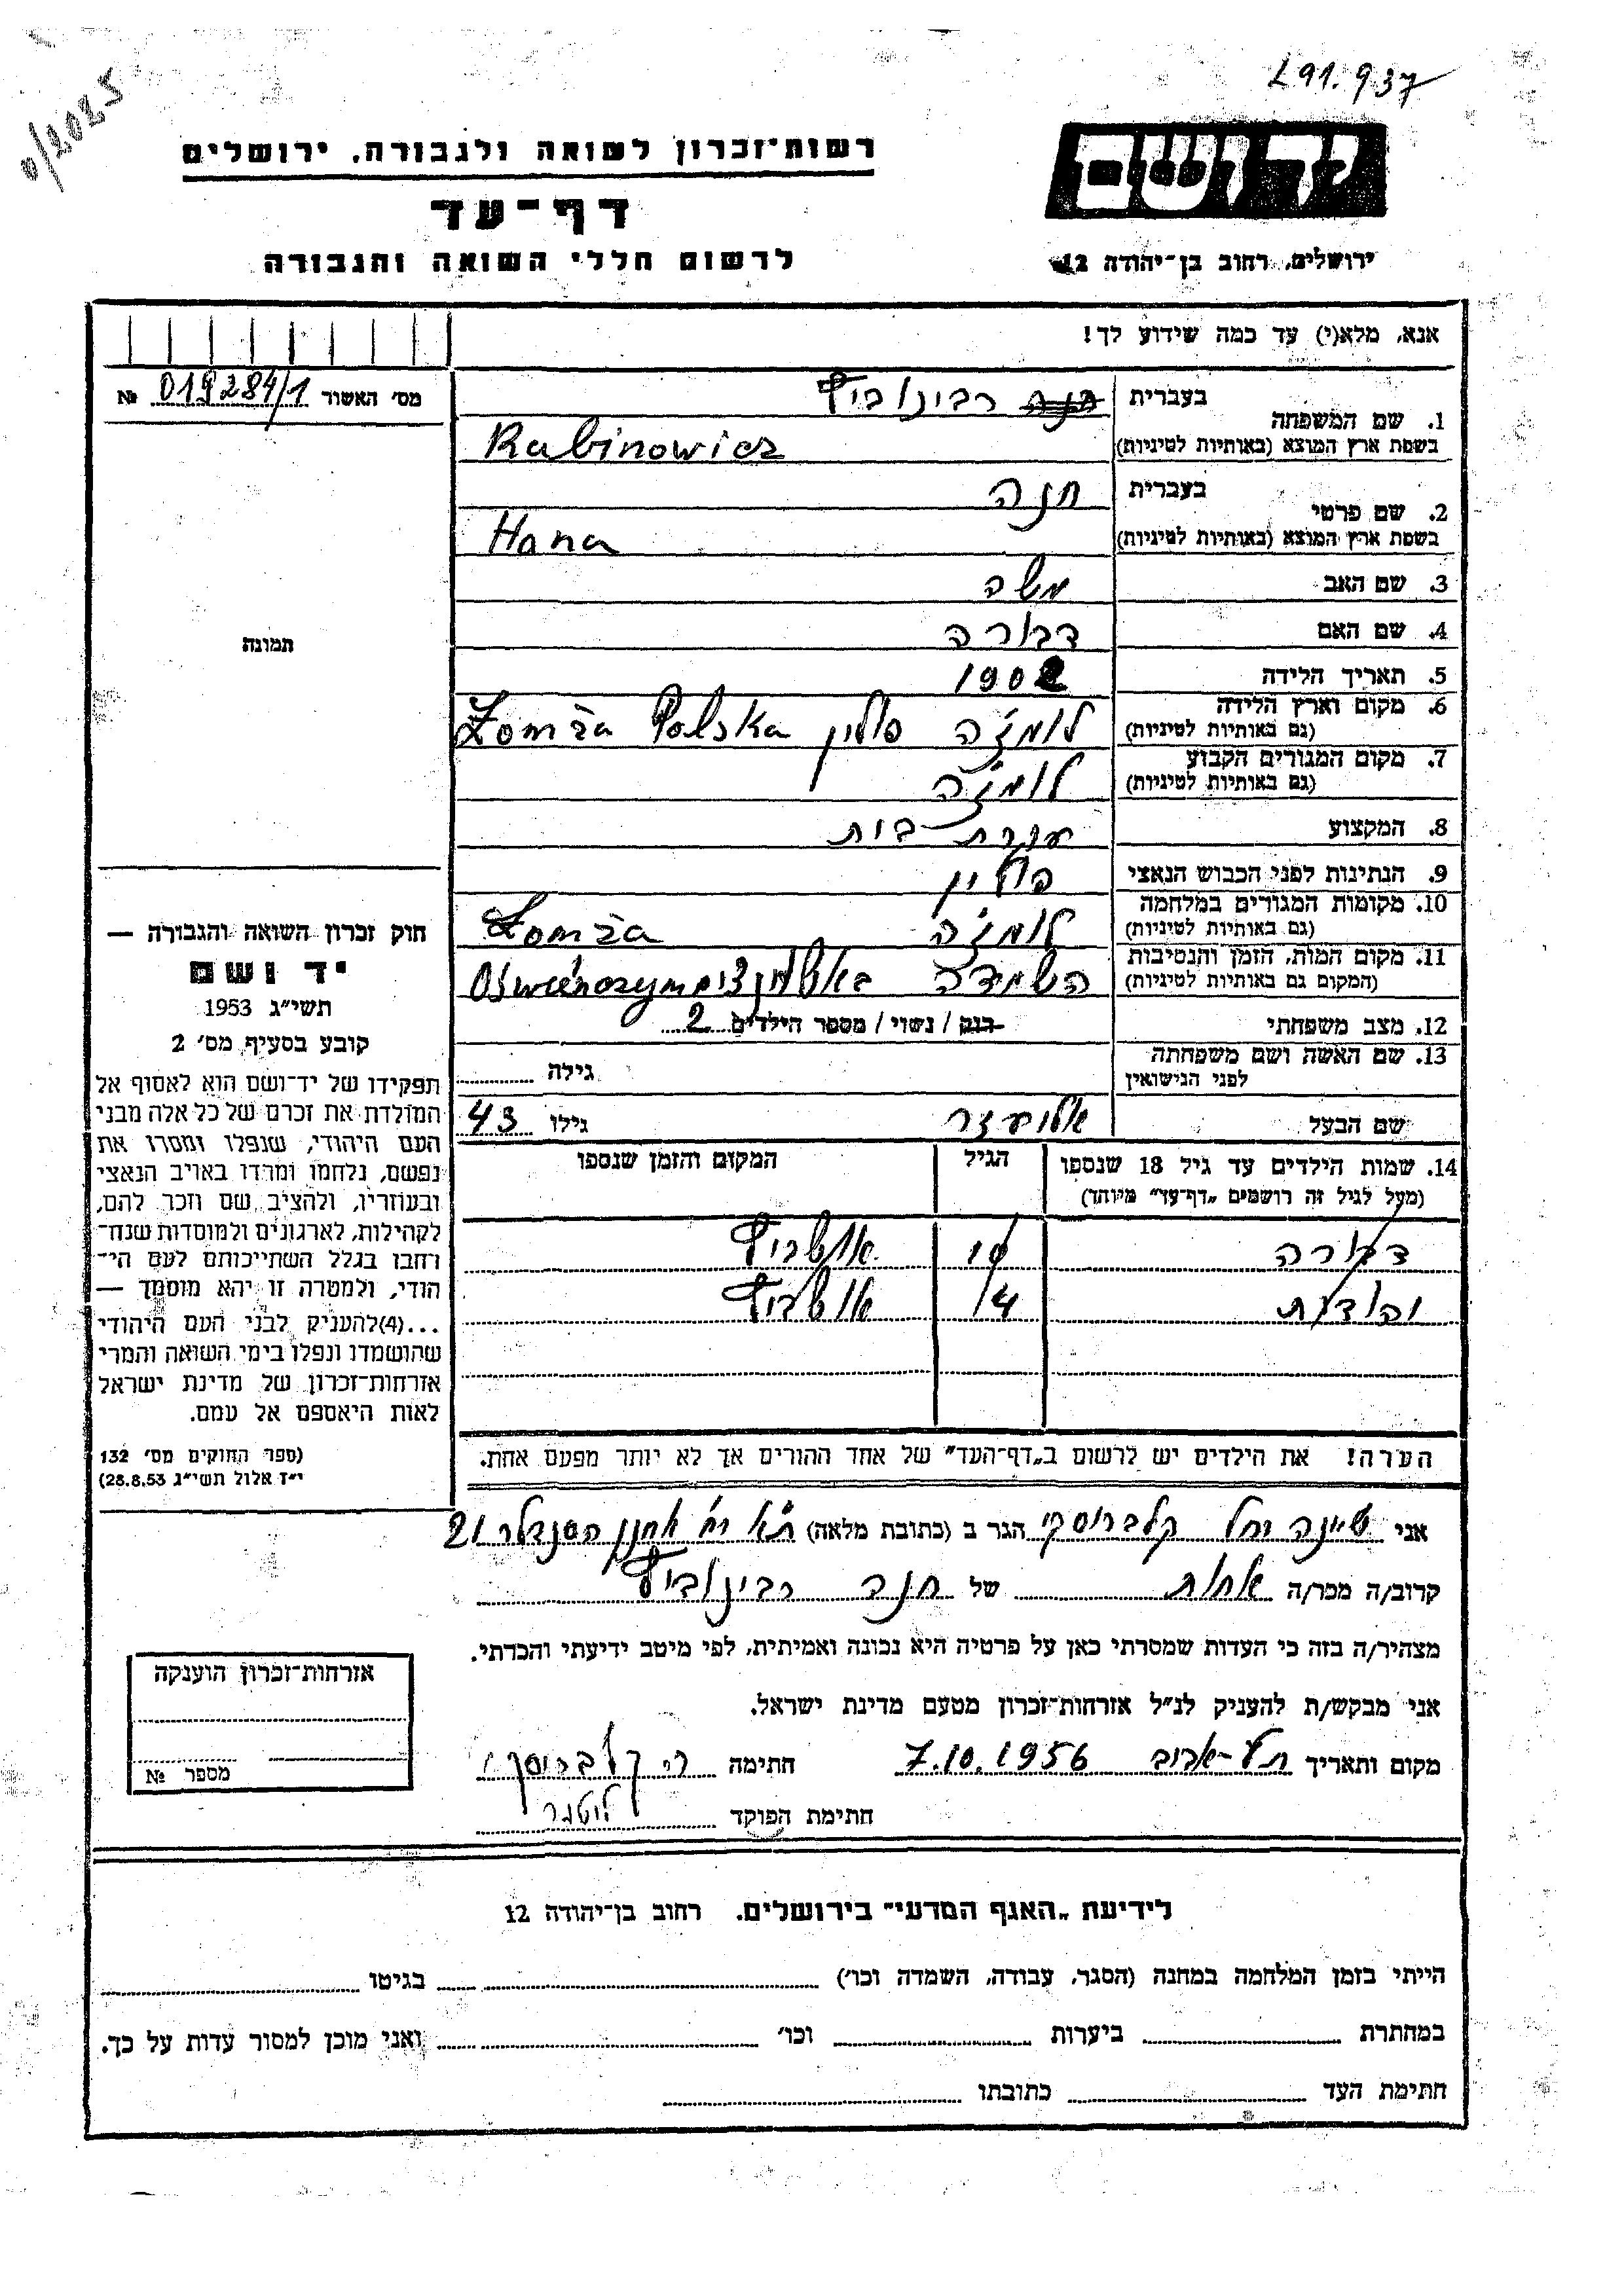 L91.937
0/2025
יד ושם
רשות־זכרון לשואה ולגבורה, ירושלים
דף־עד
לרשום חללי השואה והגבורה
ירושלים, רחוב בן־יהודה 12
אנא, מלא(י) עד כמה שידוע לך!
מס׳ האשור 019284/1 №
תמונה
1. שם המשפחה
בעברית רבינוביץ
בשפת ארץ המוצא (באותיות לטיניות) Rabinowicz
2. שם פרטי
בעברית חנה
בשפת ארץ המוצא (באותיות לטיניות) Hana
3. שם האב משה
4. שם האם דבורה
5. תאריך הלידה 1902
6. מקום וארץ הלידה
(גם באותיות לטיניות) לומז'ה פולין Łomża Polska
7. מקום המגורים הקבוע
(גם באותיות לטיניות) לומז'ה
8. המקצוע עקרת בית
9. הנתינות לפני הכבוש הנאצי פולין
10. מקומות המגורים במלחמה
(גם באותיות לטיניות) לומז'ה Łomża
11. מקום המות, הזמן והנסיבות
(המקום גם באותיות לטיניות) השמדה
12. מצב משפחתי רוק / נשוי / מספר הילדים 2
13. שם האשה ושם משפחתה
לפני הנישואין גילה
שם הבעל אליעזר גילו 43
14. שמות הילדים עד גיל 18 שנספו
(מעל לגיל זה רושמים „דף־עד״ מיוחד)
הגיל
המקום והזמן שנספו
דבורה 10 אושביץ
יהודית 14 אושביץ
הערה! את הילדים יש לרשום ב„דף־העד״ של אחד ההורים אך לא יותר מפעם אחת.
חוק זכרון השואה והגבורה —
יד ושם
תשי״ג 1953
קובע בסעיף מס׳ 2
תפקידו של יד־ושם הוא לאסוף אל
המולדת את זכרם של כל אלה מבני
העם היהודי, שנפלו ומסרו את
נפשם, נלחמו ומרדו באויב הנאצי
ובעוזריו, ולהציב שם וזכר להם,
לקהילות, לארגונים ולמוסדות שנח־
רחבו בגלל השתייכותם לעם הי־
הודי, ולמטרה זו יהא מוסמך —
...(4)להעניק לבני העם היהודי
שהושמדו ונפלו בימי השואה והמרי
אזרחות־זכרון של מדינת ישראל
לאות היאספם אל עמם.
(ספר החוקים מס׳ 132
י״ז אלול תשי״ג 28.8.53)
אני שיינה רחל קלברוסקי הגר ב (כתובת מלאה) ת"א רח' יוחנן הסנדלר 21
קרוב/ה מכר/ה אחות של חנה רבינוביץ
מצהיר/ה בזה כי העדות שמסרתי כאן על פרטיה היא נכונה ואמיתית, לפי מיטב ידיעתי והכרתי.
אני מבקש/ת להעניק לנ״ל אזרחות־זכרון מטעם מדינת ישראל.
מקום ותאריך תל-אביב 7.10.1956 חתימה קלברוסקי
חתימת הפוקד
אזרחות־זכרון הוענקה
מספר №
לידיעת „האגף המדעי״ בירושלים, רחוב בן־יהודה 12
הייתי בזמן המלחמה במחנה (הסגר, עבודה, השמדה וכו׳) בגיטו
במחתרת ביערות וכו׳ ואני מוכן למסור עדות על כך.
חתימת העד כתובתו